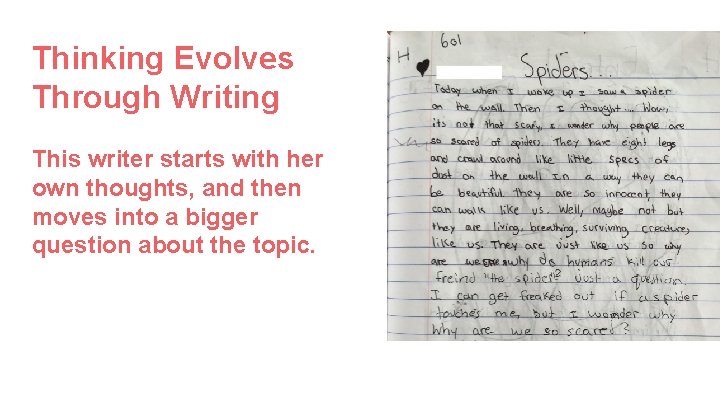 Thinking Evolves
Through Writing
This writer starts with her
own thoughts, and then
moves into a bigger
question about the topic.
601
H
Spiders...
Today when I woke up I saw a spider
on the wall. Then I thought... Wow,
it's not that scary, I wonder why people are
so scared of spiders. They have eight legs
and crawl around like little specs of
dust on the wall In a way they can
be beautiful. They are so innocent, they
can walk like us. Well, maybe not but
they are living, breathing, surviving, creatures,
like us. They are Just like us so why
are we why do humans kill our
freind "the spider"? Just a question.
I can get freaked out if a spider
touches me, but I wonder why
Why are we so scared?